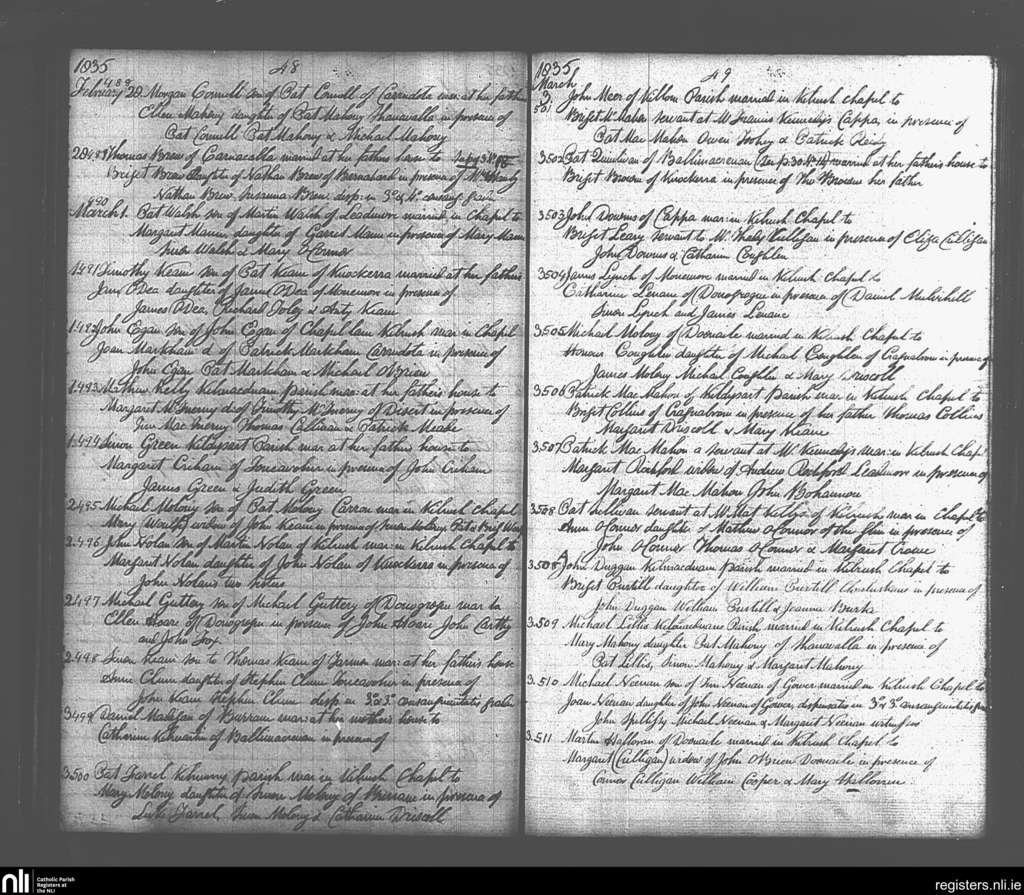 1835 48
488
February 28 Morgan Connell son of Pat Connell of Carndota mar: at her fathers
Ellen Mahony daughter of Pat Mahony Shanavalla in presence of
Pat Connell Pat Mahony & Michael Mahony
28 489 Thomas Brew of Carnacalla married at her fathers house to
Briget Brew daughter of Nathan Brew of in presence of
Nathan Brew Susanna Brew disp: in 3° & 4° consang:
490
March 1. Pat Walsh son of Martin Walsh of Leadmore married in Chapel to
Margaret Mann daughter of Garret Mann in presence of Mary Mann
Walsh & Mary O'Connor
1.491 Timothy Keane son of Pat Keane of Knockerra married at her fathers
Jane O'Dea daughter of James O'Dea of Monemore in presence of
James O'Dea, Richard Foley & Keane
1.492 John Egan son of John Egan of Chapel lane Kilrush mar: in Chapel
Joan Markham d of Patrick Markham Carndota in presence of
John Egan Pat Markham & Michael O'Brien
1.493 Mathew Kelly Kilmacduan parish mar: at her fathers house to
Margaret McInerny d: of Timothy McInerny of Disert in presence of
Mac Inerny Thomas Culligan & Patrick Meade
1.494 Simon Green Kildysart Parish mar at her fathers house to
Margaret Criham of in presence of John Criham
James Green & Judith Green
2.495 Michael Molony son of Pat Molony Carron mar in Kilrush Chapel
Mary widow of John Keane in presence of Molony Pat & Briget
2.496 John Nolan son of Martin Nolan of Kilrush mar: in Kilrush Chapel to
Margaret Nolan daughter of John Nolan of Knockerra in presence of
John Nolan
2.497 Michael Guttery son of Michael Guttery of Donogrogue mar to
Ellen Hoare of Donogrogue in presence of John Hoare John Carthy
and John Fox
2.498 Sinon Keane son to Thomas Keane of mar: at her fathers house
Anne Clune daughter of Stephen Clune in presence of
John Keane Stephen Clune disp in 3° & 3° consanguinitatis gradu
3.499 Daniel Madigan of Burrane mar: at her mothers house to
Catherine of Ballimacrenan in presence of
3.500 Pat Farrel Kilmurry parish mar in Kilrush Chapel to
Mary Molony daughter of Molony of Burrane in presence of
Luke Farrel, Molony & Catharine Driscoll
1835 49
March
3
501 John Meer of Killom Parish married in Kilrush chapel to
Briget McMahon servant at Mr Francis Kennedy's Cappa, in presence of
Pat Mac Mahon Owen & Patrick
3.502 Pat Quinlivan of Ballimacrenan married at her father's house to
Briget Browne of Knockerra in presence of Browne her father
3.503 John Downs of Cappa mar: in Kilrush Chapel to
Briget Leary servant to Mr. Thady Culligan in presence of Eliza Culligan
John Downs & Catharine Coughlen
3.504 James Lynch of Monemore married in Kilrush chapel to
Catharine Lenane of Donogrogue in presence of Daniel Mulvihill
Simon Lynch and James Lenane
3.505 Michael Molony of Doonaile married in Kilrush Chapel to
Honour Coughlen daughter of Michael Coughlen of in presence of
James Molony Michael Coughlen & Mary Driscoll
3.506 Patrick Mac Mahon of Kildysart Parish mar in Kilrush Chapel to
Briget Collins of in presence of her father Thomas Collins
Margaret Driscoll & Mary Keane
3.507 Patrick Mac Mahon a servant at Mr. Kennedy's mar: in Kilrush Chapel
Margaret Rochford widow of Andrew Rochford Leadmore in presence of
Margaret Mac Mahon John Bohannon
3.508 Pat Sullivan servant at of Kilrush mar in Chapel to
Ann O'Connor daughter of Mathew O'Connor of the Glin in presence of
John O'Connor Thomas O'Connor & Margaret Crowe
A
3.508 John Duggan Kilmacduan Parish married in Kilrush Chapel to
Briget Burtill daughter of William Burtill in presence of
John Duggan William Burtill & Joanna Burke
3.509 Michael Lillis Parish married in Kilrush Chapel to
Mary Mahony daughter Pat Mahony of Shanavalla in presence of
Pat Lillis, Simon Mahony & Margaret Mahony
3.510 Michael Neenan son of Neenan of Gower married in Kilrush Chapel to
Joan Neenan daughter of John Neenan of Gower, dispensatio in 3° & 3° consanguinitatis
John Michael Neenan & Margaret Neenan witnesses
3.511 Martin Halloran of Doonaile married in Kilrush Chapel to
Margaret (Culligan) widow of John O'Brien Doonaile in presence of
Connor Culligan William Cooper & Mary
nli Catholic Parish
Registers at
the NLI
registers.nli.ie